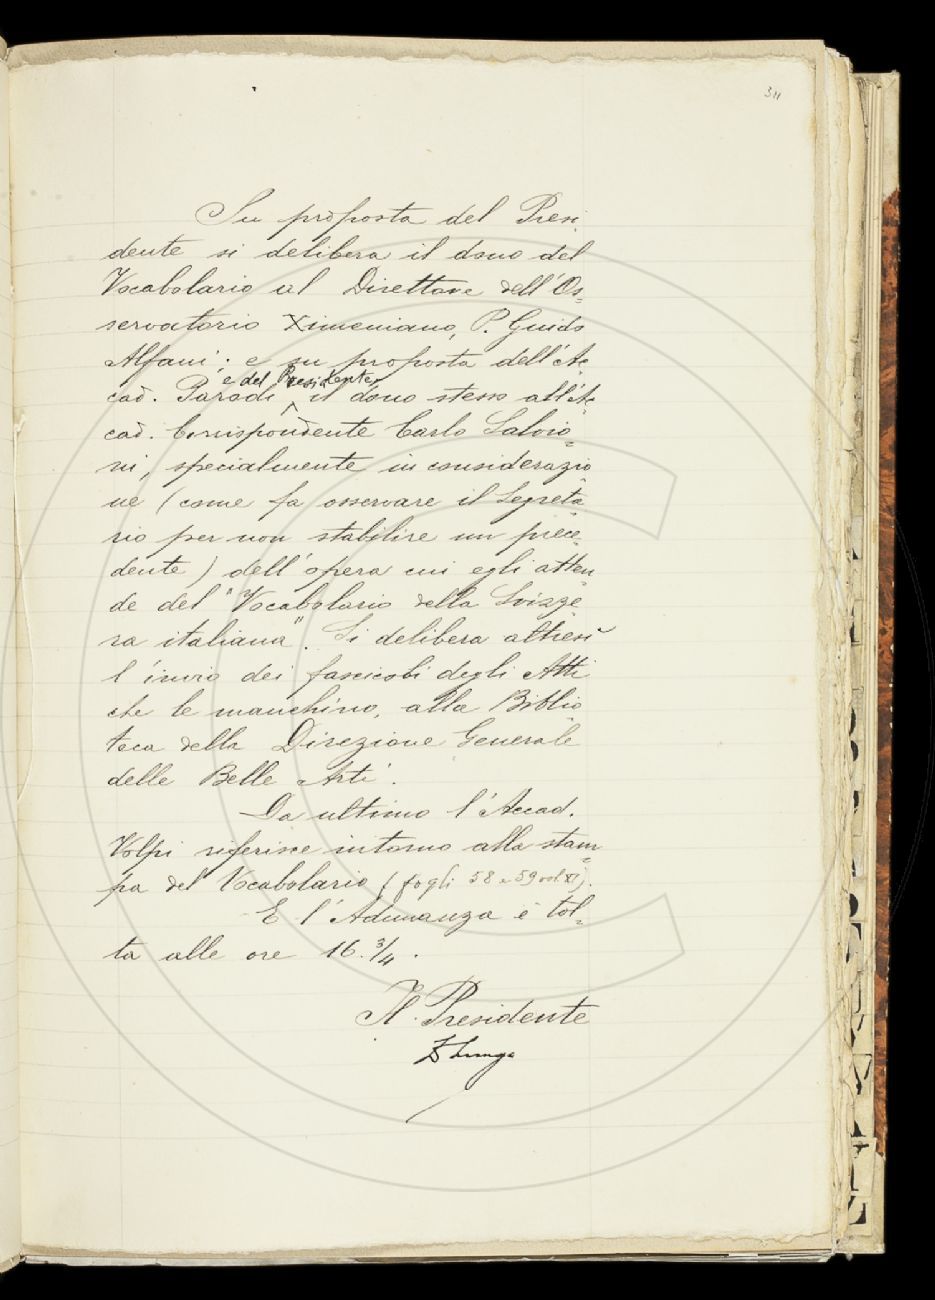 311
Su proposta del Presi-
dente si delibera il dono del
Vocabolario al Direttore dell'Os=
servatorio Ximeniano, P. Guido
Alfani; e su proposta dell'Ac-
e del Presidente,
cad. Parodi il dono stesso all'Ac-
cad. Corrispondente Carlo Salvio=
ni, specialmente in considerazio
ne (come fa osservare il Segreta=
rio per non stabilire un prece=
dente) dell'opera cui egli atten
de del "Vocabolario della Svizze=
ra italiana". Si delibera altresì
l'invio dei fascicoli degli Atti
che le manchino, alla Biblio=
teca della Direzione Generale
delle Belle Arti.
Da ultimo l'Accad.
Volpi riferisce intorno alla stam=
pa del Vocabolario (fogli 58 e 59 vol. XI).
E l'Adunanza è tol=
ta alle ore 16.3/4.
Il Presidente